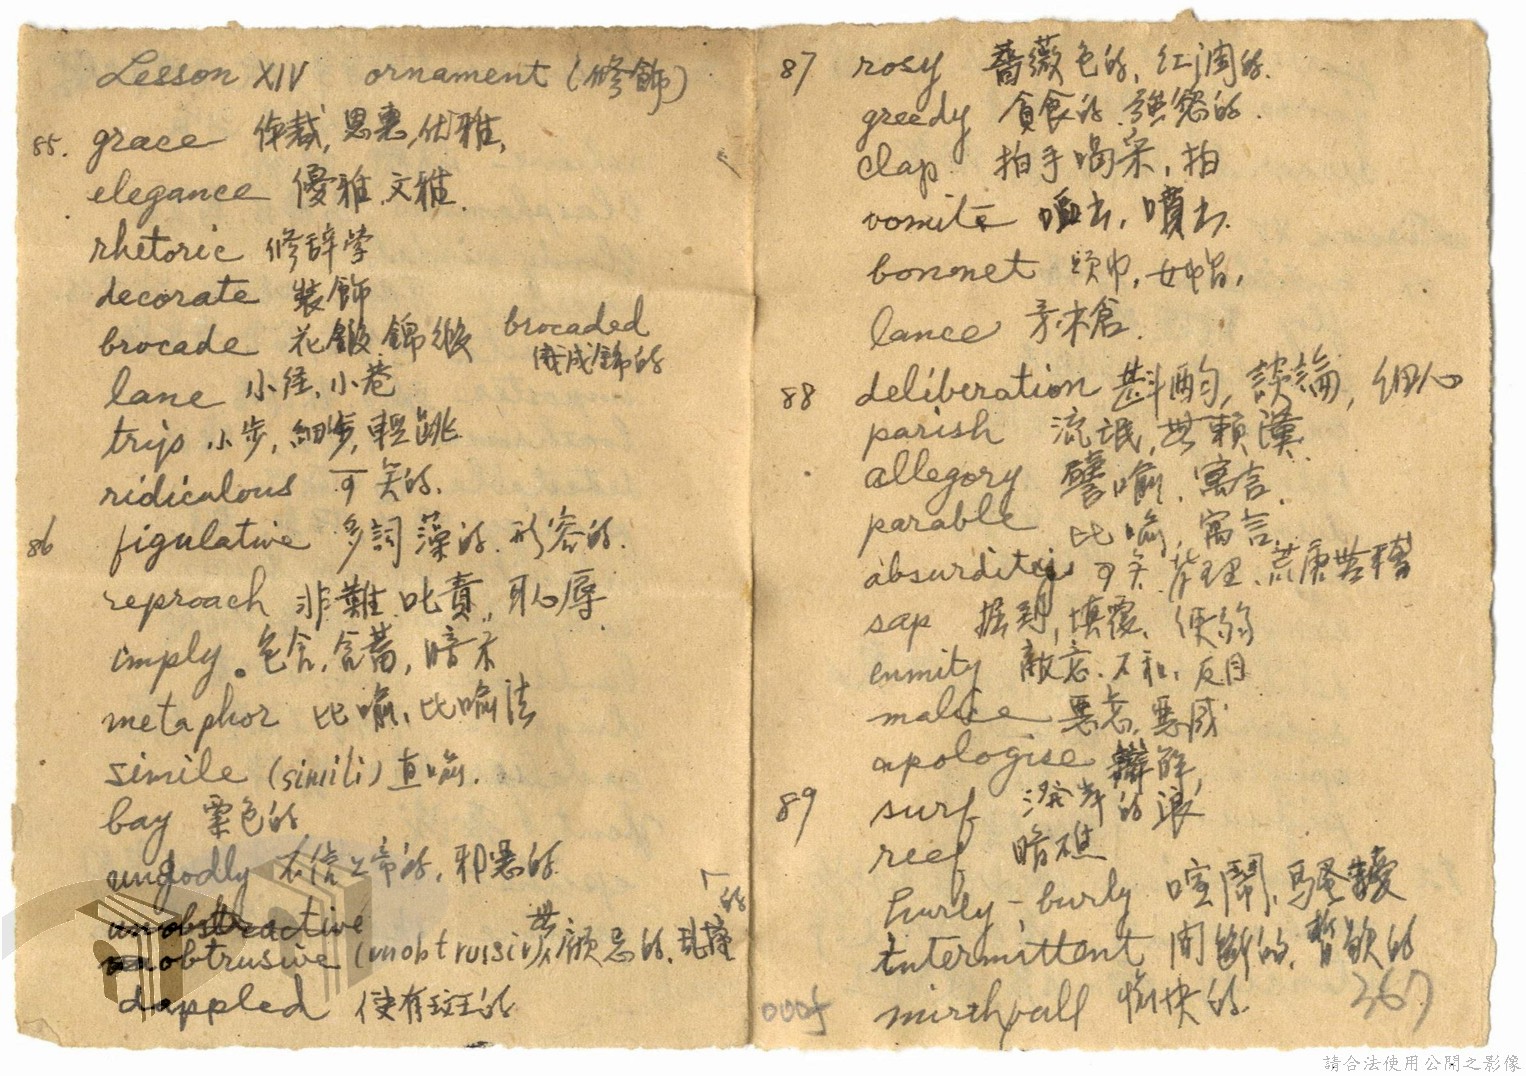 Lesson XIV ornament (修飾)
85. grace 体裁, 恩惠, 优雅,
elegance 優雅, 文雅.
rhetoric 修辞学
decorate 裝飾
brocade 花緞, 錦緞 brocaded
織成錦的
lane 小径, 小巷
trip 小步, 細步, 輕跳
ridiculous 可笑的,
86 figulative 多詞藻的, 形容的.
reproach 非難, 叱責, 恥辱
imply. 包含, 含蓄, 暗示
metaphor 比喻, 比喻法
simile (simili) 直喻.
bay 栗色的
ungodly 不信上帝的, 邪惡的
的
unobtrusive 無顧忌的,
dappled 使有斑的
87 rosy 薔薇色的, 红润的.
greedy 貪食的,
clap 拍手喝采, 拍
vomite 嘔出, 噴出
bonnet 頭巾, 女帽,
lance 矛, 木槍.
88 deliberation 斟酌, 談論, 细心
parish 流氓, 無賴漢
allegory 譬喻, 寓言.
parable 比喻, 寓言
absurdity 可笑, 背理, 荒唐無稽
sap 掘到, 填覆,
enmity 敵意, 不和, 反目
malice 惡意, 惡感
apologise 辯解,
89 surf 岸的浪
reef 暗礁
hurly-burly 喧鬧, 騷擾
intermittent 间断的, 暫歇的
mirthfull 愉快的.
367
請合法使用公開之影像